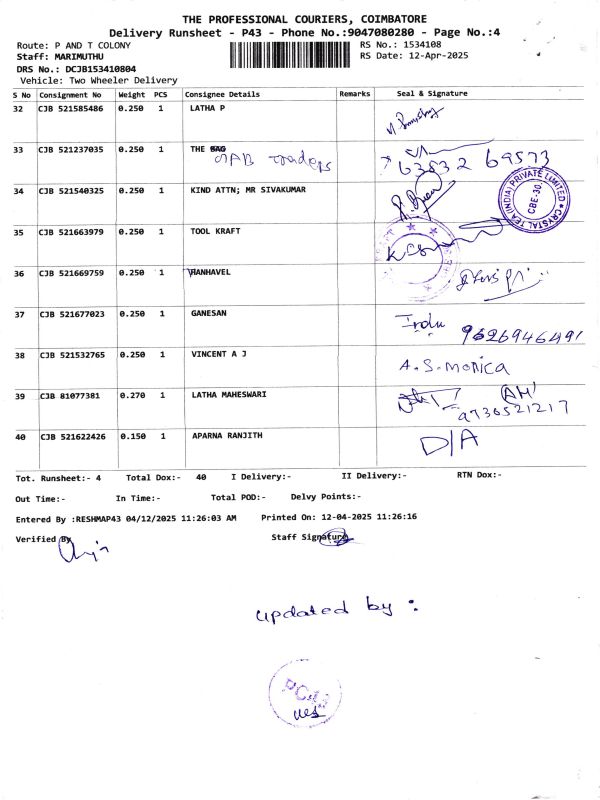 THE PROFESSIONAL COURIERS, COIMBATORE
Delivery Runsheet - P43 - Phone No.:9047080280 - Page No.:4
Route: P AND T COLONY RS No.: 1534108
Staff: MARIMUTHU RS Date: 12-Apr-2025
DRS No.: DCJB153410804
Vehicle: Two Wheeler Delivery
S No Consignment No Weight PCS Consignee Details Remarks Seal & Signature
32 CJB 521585486 0.250 1 LATHA P
33 CJB 521237035 0.250 1 THE
traders 63832 69573
34 CJB 521540325 0.250 1 KIND ATTN; MR SIVAKUMAR
CRYSTAL TEA (INDIA) PRIVATE LIMITED
CBE-30.
35 CJB 521663979 0.250 1 TOOL KRAFT
36 CJB 521669759 0.250 1 HANHAVEL
37 CJB 521677023 0.250 1 GANESAN
Indu 9626946491
38 CJB 521532765 0.250 1 VINCENT A J
A.S.monica
39 CJB 81077381 0.270 1 LATHA MAHESWARI
9736521217
40 CJB 521622426 0.150 1 APARNA RANJITH
D/A
Tot. Runsheet:- 4 Total Dox:- 40 I Delivery:- II Delivery:- RTN Dox:-
Out Time:- In Time:- Total POD:- Delvy Points:-
Entered By :RESHMAP43 04/12/2025 11:26:03 AM Printed On: 12-04-2025 11:26:16
Verified By Staff Signature
updated by :